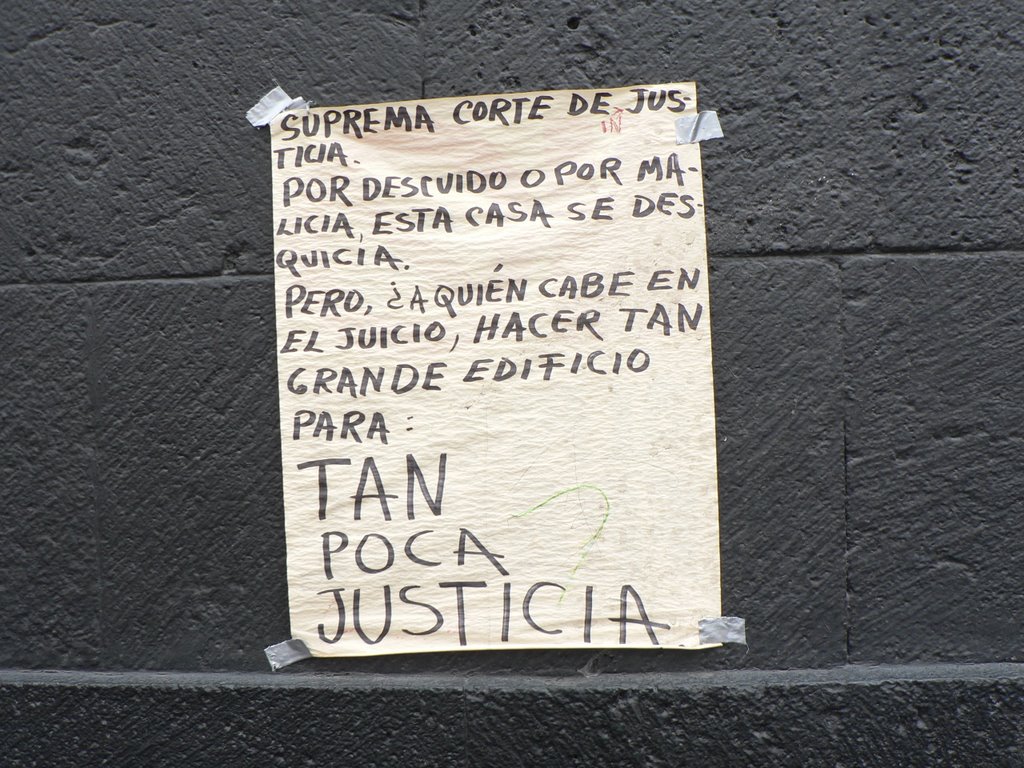 SUPREMA CORTE DE JUS-
IN
TICIA.
POR DESCUIDO O POR MA-
LICIA, ESTA CASA SE DES-
QUICIA.
PERO, ¿A QUIÉN CABE EN
EL JUICIO, HACER TAN
GRANDE EDIFICIO
PARA:
TAN
POCA
JUSTICIA
?